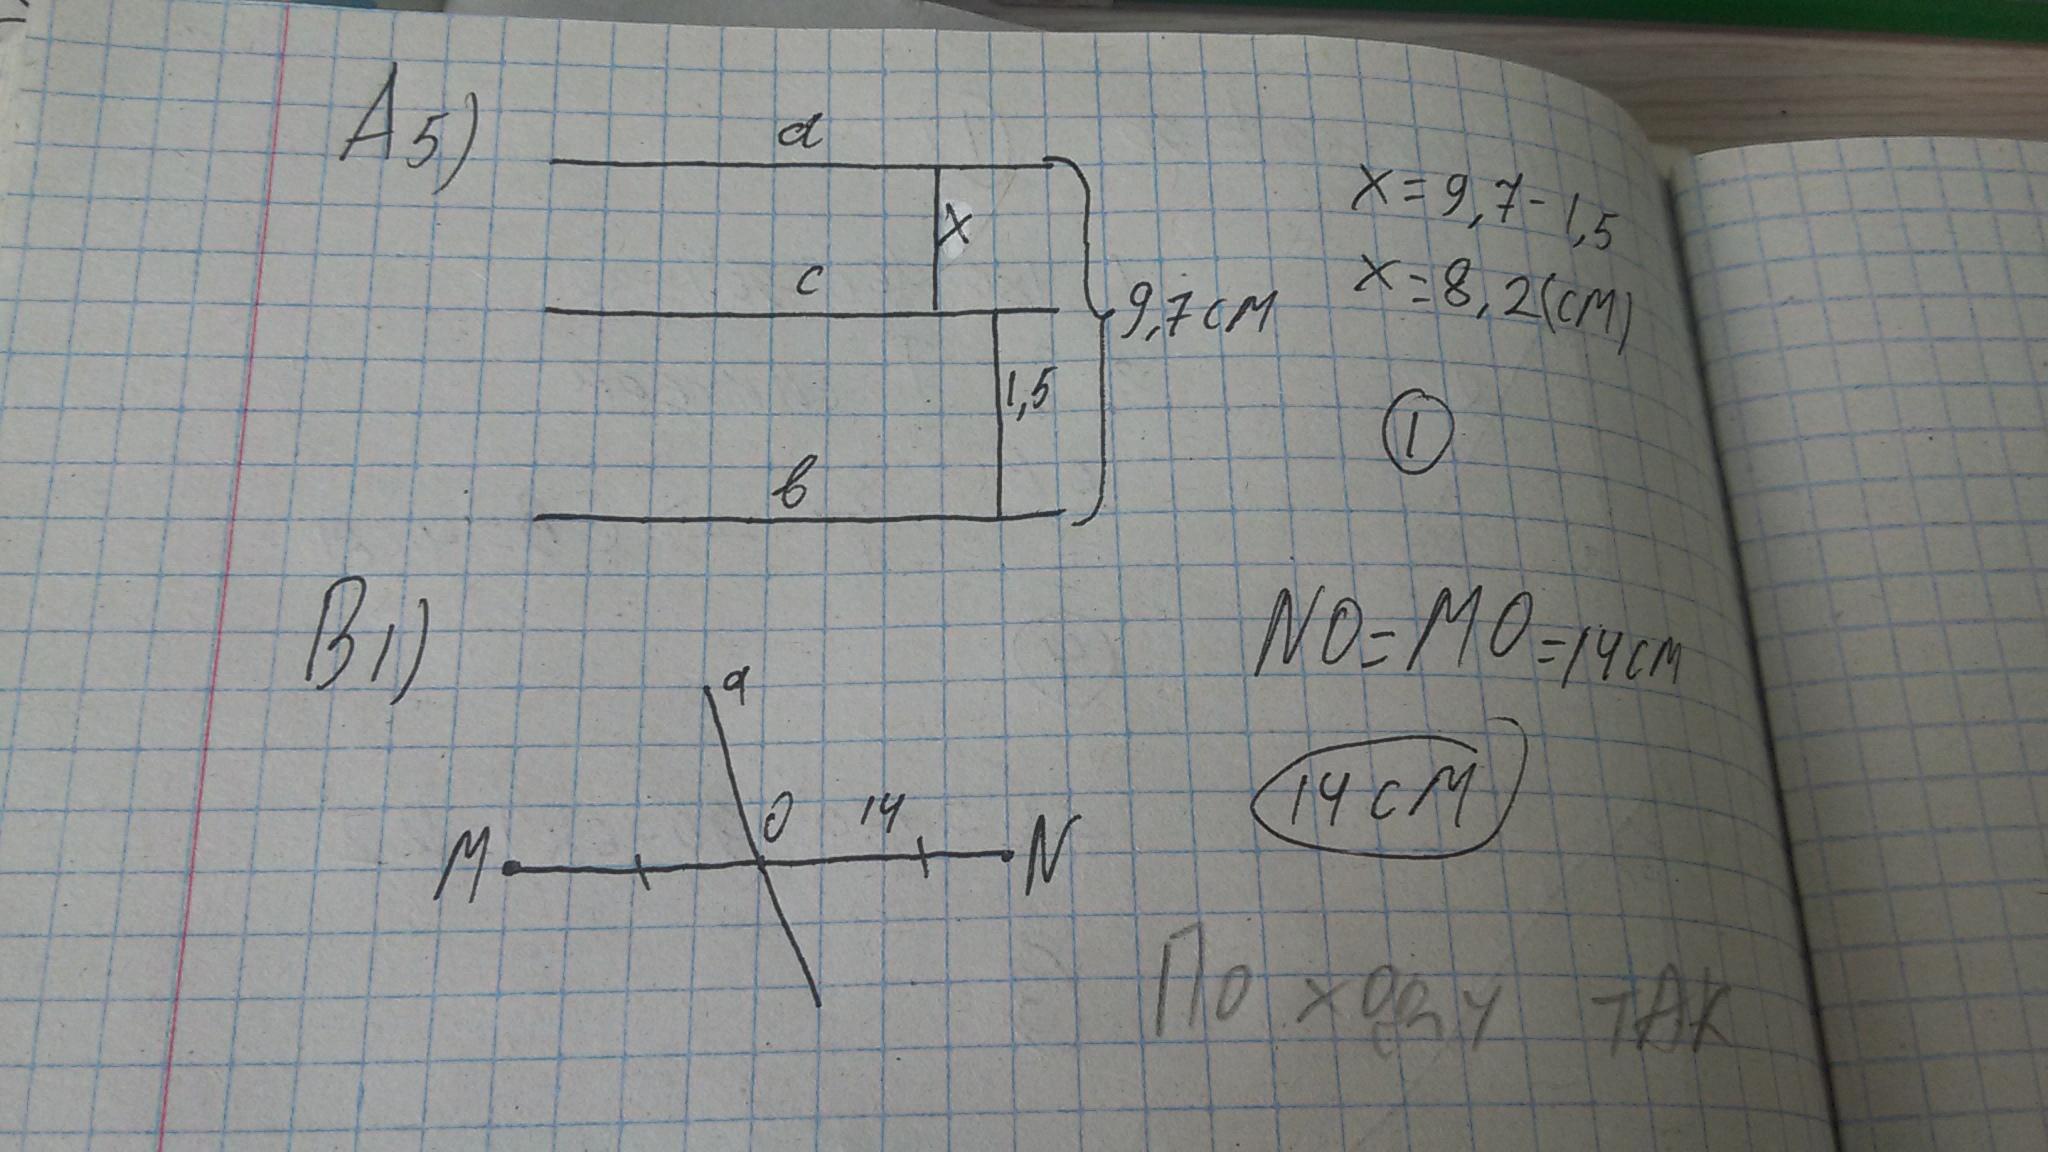 А5)
d
x
c
9,7 см
1,5
в
x = 9,7 - 1,5
x = 8,2 (см)
1
В1)
a
M
O
14
N
NO = MO = 14 см
14 см
По ходу так